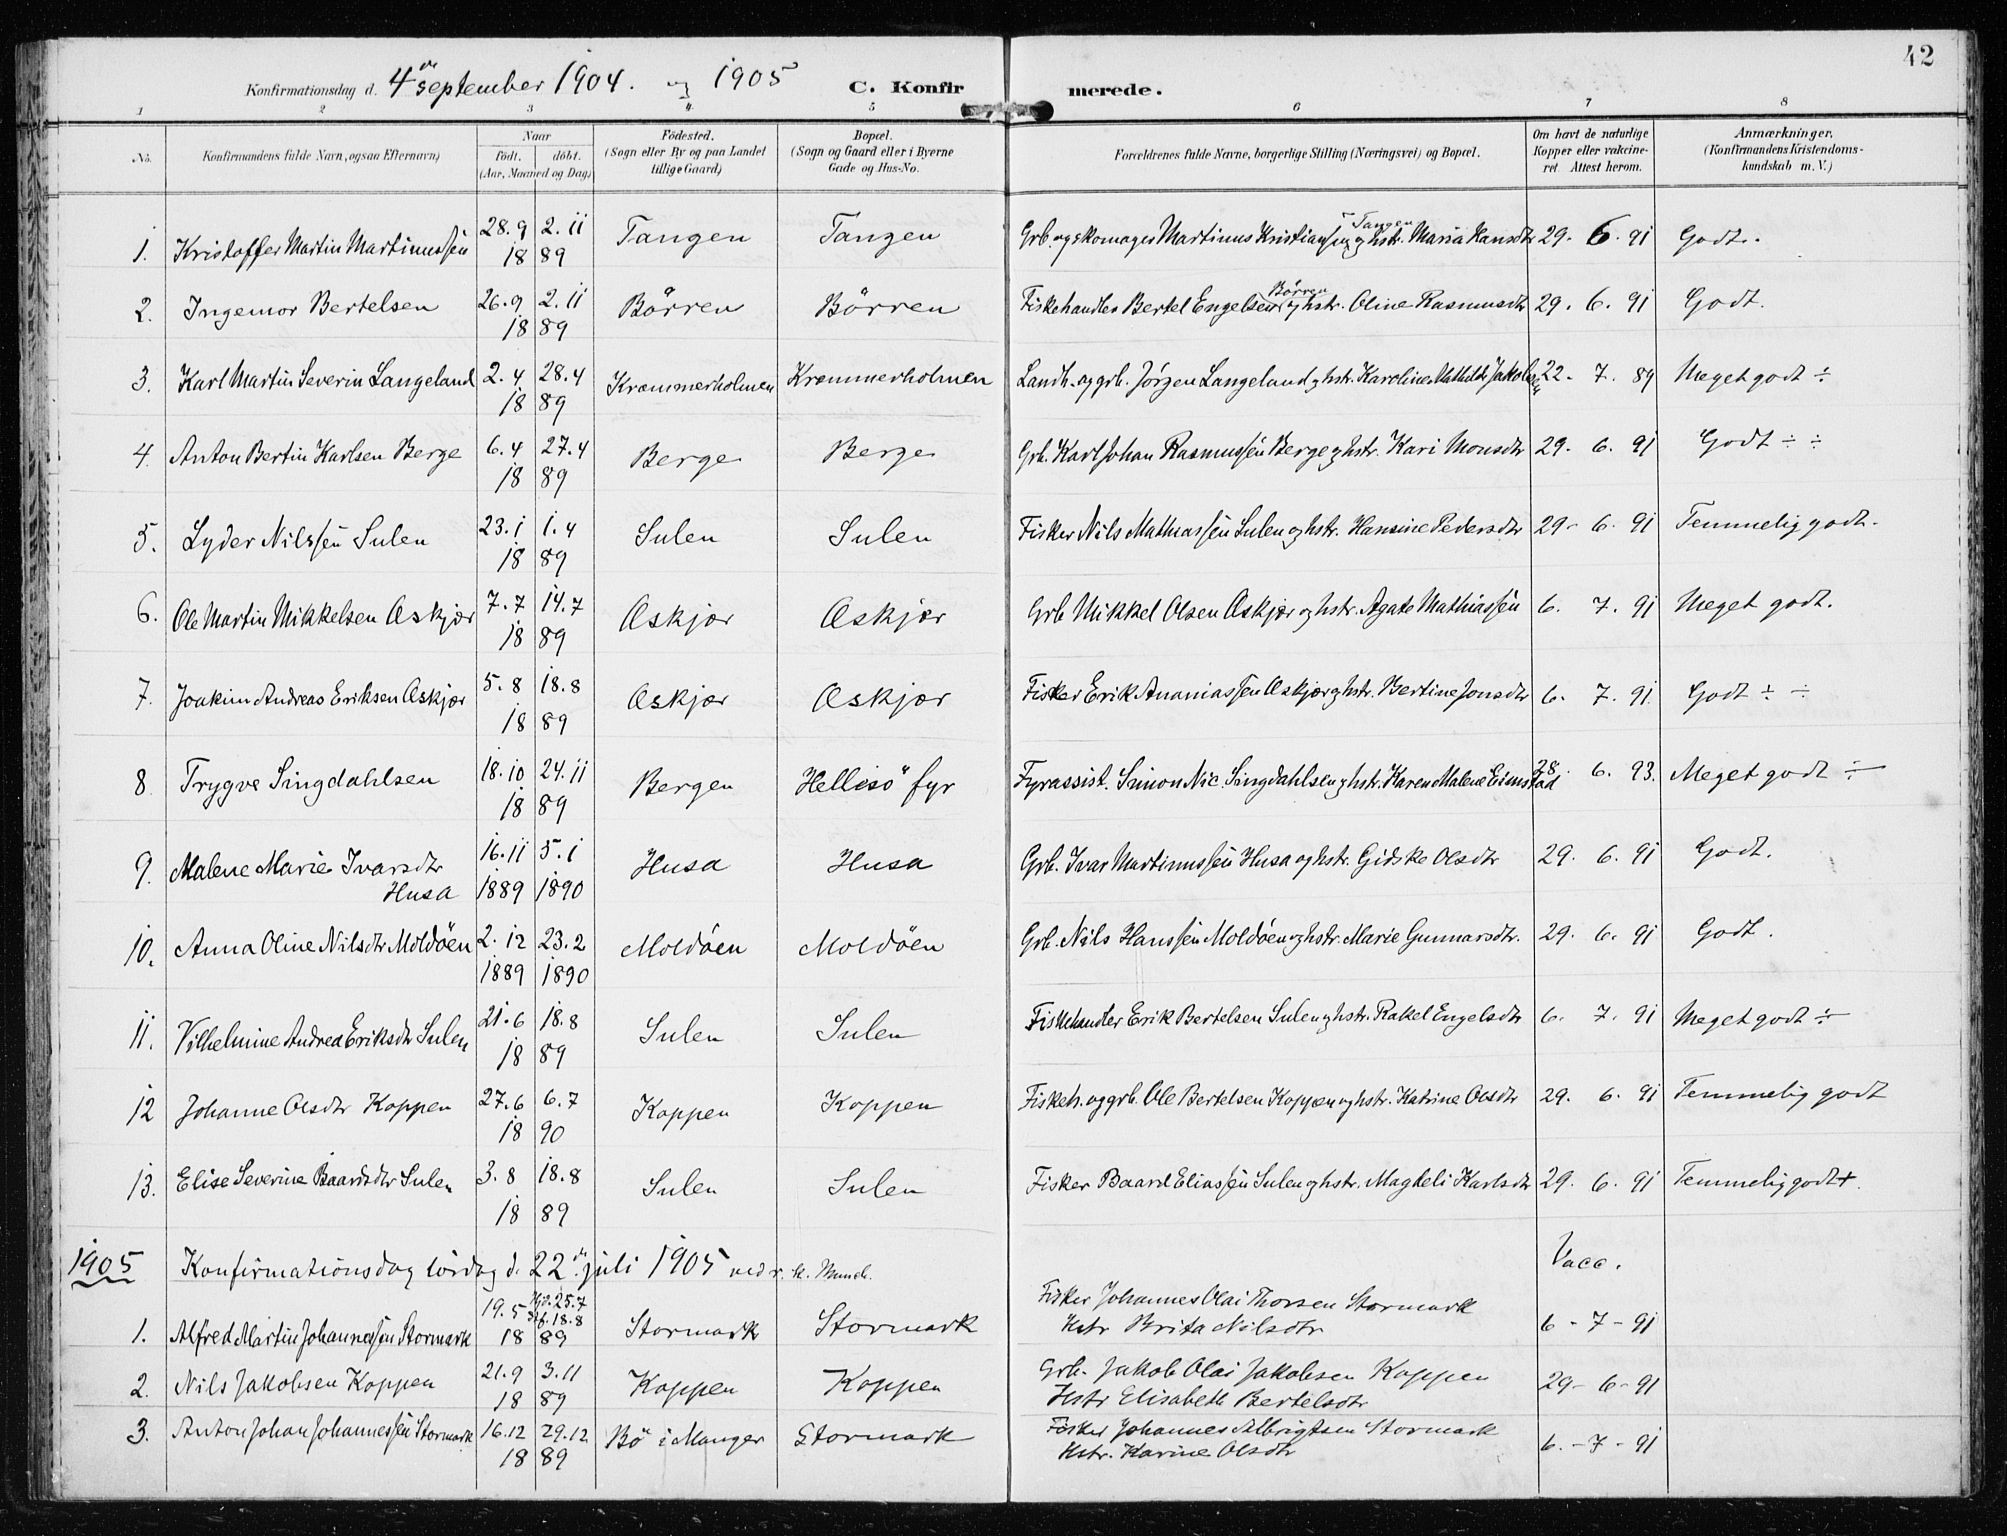 42
Konfirmationsdag d. 4de september 1904. og 1905 C. Konfirmerede.
1 2 3 4. 5 6 7 8
No. Konfirmandens fulde Navn, ogsaa Efternavn) Naar födt. döbt. (Aar, Maaned og Dag) Födested. (Sogn eller By og paa Landet tillige Gaard) Bopæl. (Sogn og Gaard eller i Byerne Gade og Hus-No. Forældrenes fulde Navne, borgerlige Stilling (Næringsvei) og Bopæl. Om havt de naturlige Kopper eller vakcineret Attest herom. Anmærkninger. (Konfirmandens Kristendomskundskab m. V.)
1. Kristoffer Martin Martinussen 28.9 2.11 1889 Tangen Tangen Grb. og skomager Martinus Kristiansen Tangen og hstr. Maria Hansdtr 29. 6. 91 Godt.
2. Ingemor Bertelsen 26.9 2.11 1889 Börren Börren Fiskehandler Bertel Engelsen Börren og hstr. Oline Rasmusdtr 29. 6. 91 Godt.
3. Karl Martin Severin Langeland 2.4 28.4 1889 Kræmmerholmen Kræmmerholmen Landh. og grb. Jörgen Langeland og hstr. Karoline Mathilde Jakobsen 22. 7. 89 Meget godt ÷
4. Anton Bertin Karlsen Berge 6.4 27.4 1889 Berge Berge Grb. Karl Johan Rasmussen Berge og hstr. Kari Monsdtr 29. 6. 91 Godt ÷ ÷
5. Lyder Nilssen Sulen 23.1 1.4 1889 Sulen Sulen Fisker Nils Mathiassen Sulen og hstr. Hansine Pedersdtr 29. 6. 91 Temmelig godt.
6. Ole Martin Mikkelsen Æskjær 7.7 14.7 1889 Æskjær Æskjær Grb Mikkel Olsen Æskjær og hstr. Agate Mathiassen 6. 7. 91 Meget godt.
7. Joakim Andreas Eriksen Æskjær 5.8 18.8 1889 Æskjær Æskjær Fisker Erik Ananiassen Æskjær og hstr. Bertine Jonsdtr 6. 7. 91. Godt ÷ ÷
8 Trygve Singdahlsen 18.10 24.11 1889 Bergen Hellisö fyr Fyrassist. Simon Nic. Singdahlsen og hstr. Karen Malene 28. 6. 93. Meget godt ÷
9. Malene Marie Ivarsdtr Husa 16.11 5.1 1889 1890 Husa Husa Grb. Ivar Martinussen Husa og hstr. Gidske Olsdtr 29. 6. 91 Godt.
10. Anna Oline Nilsdtr Moldöen 2.12 23.2 1889 1890 Moldöen Moldöen Grb. Nils Hanssen Moldöen og hstr. Marie Gunnarsdtr. 29. 6. 91 Godt.
11. Vilhelmine Andrea Eriksdtr Sulen 21.6 18.8 1889 Sulen Sulen Fiskehandler Erik Bertelsen Sulen og hstr. Rakel Engelsdtr 6. 7. 91 Meget godt ÷
12 Johanne Olsdtr Koppen 27.6 6.7 1890 Koppen Koppen Fiskeh. og grb. Ole Bertelsen Koppen og hstr. Katrine Olsdtr 29. 6. 91 Temmelig godt
13. Elise Severine Baardsdtr Sulen 3.8 18.8 1889 Sulen Sulen Fisker Baard Eliassen Sulen og hstr. Magteli Karlsdtr 29. 6. 91 Temmelig godt +
1905 Konfirmationsdag lördag d. 22de juli 1905 ved Munch. Vacc.
1. Alfred Martin Johannessen Stormark 19.5 Hjd. 25.7 Stf. 18.8 1889 Stormark Stormark Fisker Johannes Olai Thorsen Stormark
Hstr Brita Nilsdtr 6 - 7 - 91
2. Nils Jakobsen Koppen 21.9 3.11 1889 Koppen Koppen Grb. Jakob Olai Jakobsen Koppen
Hstr Elisabeth Bertelsdtr 29 - 6 - 91
3. Anton Johan Johannessen Stormark 16.12 29.12 1889 Bö i Manger Stormark Fisker Johannes Albrigtsen Stormark
Hstr. Karine Olsdtr 6. - 7 - 91